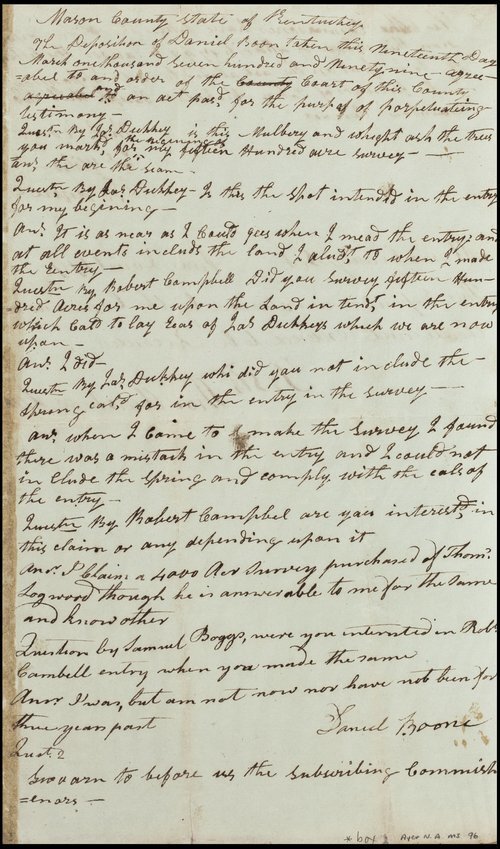 Mason County State of Kentuckey
The Deposition of Daniel Boon taken this Nineteenth Day
March one thousand Seven hundred and Ninety nine - agree-
=abel to and order of the County Court of this County
and to an act pasd. for the purps of perpetuating
testimony —
Questn By Jas. Dukhey is this Mulbery and whight ash the trees
you markd. for the begining of my fifteen Hundred acre Survey —
Ans. the are the sam —
Questn By Jas. Dukhey - Is this the Spot intendid in the entry
for my begining —
Ans. It is as near as I Could gees when I mead the entry: and
at all events includs the land I alud.d to when I made
the Eentry —
Questn By Robert Campbell Did you Survey fifteen Hun-
=dred Acres for me upon the Land in tend.d in the entry
which Cald to lay Eeas of Jas. Dukheys which we are now
upon —
Ans. I did —
Questn By Jas. Dukhey whi did you not include the —
Spring cal.d for in the entry in the Survey —
an.s when I Came to make the Survey I found
there was a mistack in the entry and I could not
in Clude the Spring and comply with the cals of
the entry —
Questn By Robert Campbel are you interest.d in
this claim or any depending upon it
Ansr. I Claim a 4000 Acr Survey purchased of Thoms.
Logwood though he is answerable to me for the Same
and know other
Question by Samuel Boggs, were you interested in Robt.
Cambell entry when you made the same
Ansr I was, but am not now nor have not been for
three years past
Daniel Boone
Quest. 2
Swoarn to before us the Subscribing Commish
=enors —
* box
Ayer N.A. MS 96